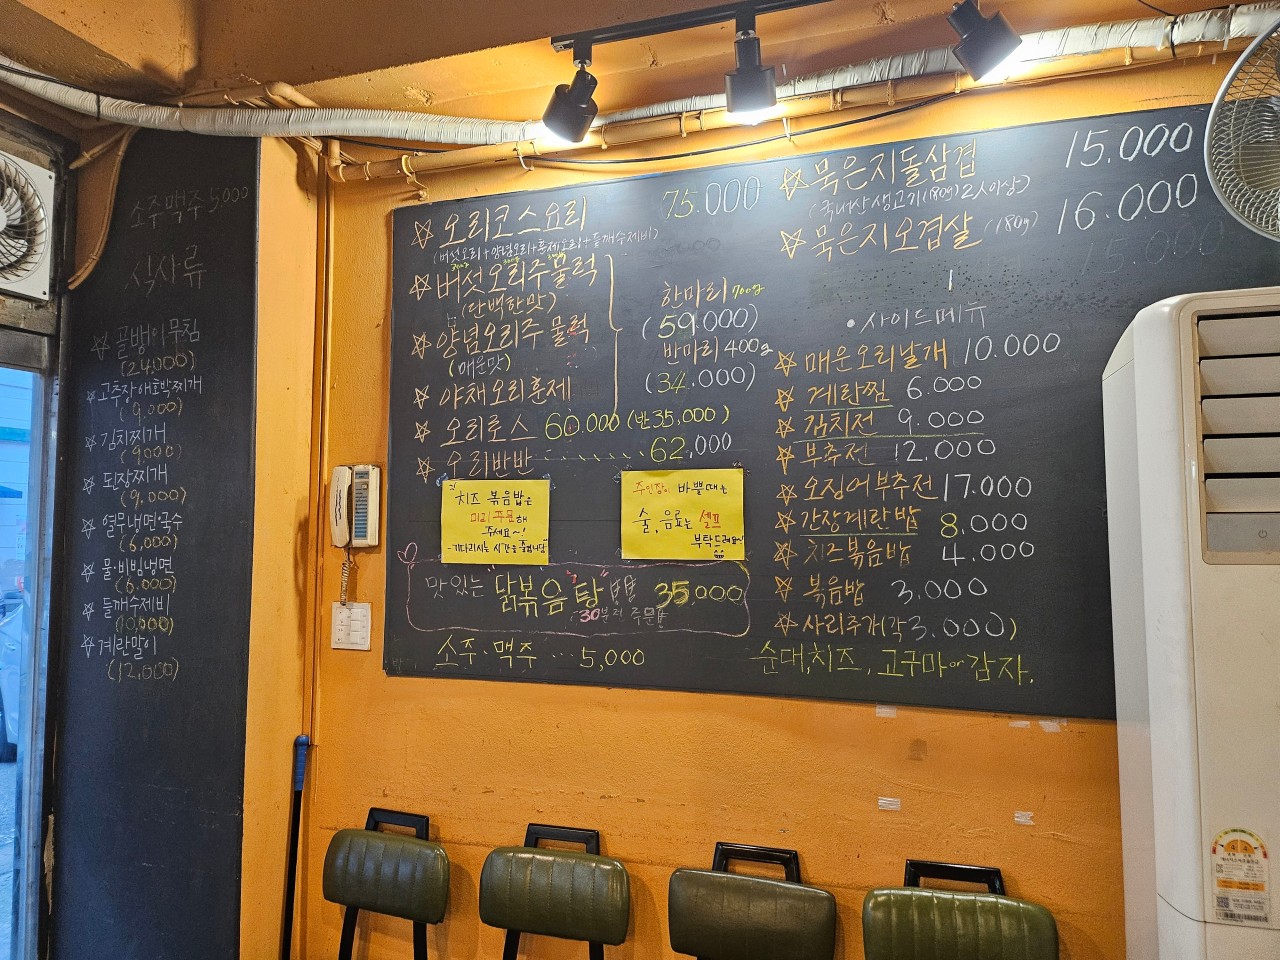 소주맥주 5,000
식사류
☆ 골뱅이무침
(24,000)
☆ 고추장애호박찌개
(9,000)
☆ 김치찌개
(9,000)
☆ 된장찌개
(9,000)
☆ 열무냉면·국수
(6,000)
☆ 물·비빔냉면
(6,000)
☆ 들깨수제비
(10,000)
☆ 계란말이
(12,000)
☆ 오리코스요리 75.000
(버섯오리+양념오리+훈제오리+들깨수제비)
☆ 버섯오리주물럭
(단백한맛)
☆ 양념오리주물럭
(매운맛)
☆ 야채오리훈제
한마리 700g
(59.000)
반마리 400g
(34.000)
☆ 오리로스 60.000 (반35,000)
☆ 오리반반 ........ 62,000
치즈 볶음밥은
미리 주문해
주세요~!
맛있는 "닭볶음탕" 35,000
30분전 주문
소주·맥주 … 5,000
주인장이 바쁠때는
술,음료는 셀프
부탁드려요~!
☆ 묵은지돌삼겹 15.000
(국내산생고기(180g)2人이상)
☆ 묵은지오겹살 (180g) 16.000
15.000
•사이드메뉴
☆ 매운오리날개 10.000
☆ 계란찜 6.000
☆ 김치전 9.000
☆ 부추전 12.000
☆ 오징어부추전 17.000
☆ 간장계란밥 8,000
☆ 치즈볶음밥 4.000
☆ 볶음밥 3,000
☆ 사리추가(각3,000)
순대,치즈,고구마or감자.